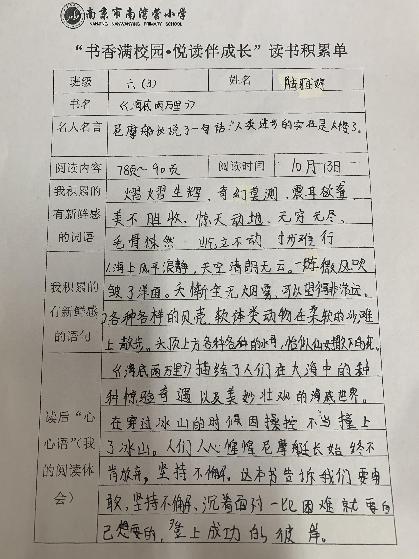 南京市南湾营小学
NANJING NANWANYING PRIMARY SCHOOL
“书香满校园•悦读伴成长”读书积累单
班级 六(3) 姓名
书名 《海底两万里》
名人名言 尼摩船长说了一句话:“人类进步的实在是太慢了。
阅读内容 78页~90页 阅读时间 10月13日
我积累的有新鲜感的词语
熠熠生辉、奇幻莫测、震耳欲聋
美不胜收、惊天动地、无穷无尽、
毛骨悚然 屹立不动 行
我积累的有新鲜感的语句
1海上风平浪静,天空清朗无云。一阵微风吹
皱了洋面。天 全无烟雾,可以望得非常远。
2各种各样的贝壳,软体类动物在柔软的沙滩
上散步。头顶上方各种各样的水母,
读后“心心语”(我的阅读体会)
《海底两万里》描绘了人们在大海中的种
种惊险奇遇以及美妙壮观的海底世界。
在穿过冰山的时候因操控不当撞上
了冰山。人们人心惶惶尼摩艇长始终不
肯放弃,坚持不懈。这本书告诉我们要勇
敢,坚持不懈、沉着面对一些困难就要的
己想要的,登上成功的彼岸。